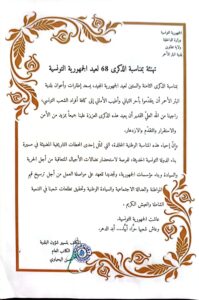 الجمهورية التونسية
وزارة الداخلية
ولاية تطاوين
بلدية البئر الأحمر
تهنئة بمناسبة الذكرى 68 لعيد الجمهورية التونسية
بمناسبة الذكرى الثامنة والستين لعيد الجمهورية المجيد، يسعد إطارات وأعوان بلدية
البئر الأحمر أن يتقدموا بأحر التهاني وأطيب الأماني إلى كافة أفراد الشعب التونسي،
راجين من الله العلي القدير أن يعيد هذه الذكرى العزيزة علينا جميعا بمزيد من الأمن
والاستقرار والتقدم والازدهار.
وإن إحياء هذه المناسبة الوطنية الخالدة، التي تمثل إحدى المحطات التاريخية المضيئة في مسيرة
بناء الدولة التونسية الحديثة، لفرصة لاستحضار نضالات الأجيال المتعاقبة من أجل الحرية
والسيادة وبناء مؤسسات الجمهورية، ولتجديد العهد على مواصلة العمل من أجل ترسيخ قيم
المواطنة والعدالة الاجتماعية والسيادة الوطنية وتحقيق تطلعات شعبنا في التنمية
الشاملة والعيش الكريم.
عاشت الجمهورية التونسية،
وعاش شعبها حرّا أبيّا... أبد الدهر.
المكلف بتسيير شؤون البلدية
الكاتب العام
اليحياوي